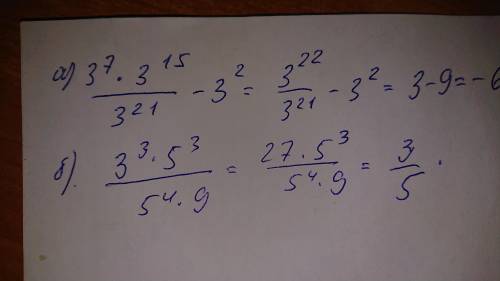 а) 3^7 · 3^15 / 3^21 - 3^2 = 3^22 / 3^21 - 3^2 = 3 - 9 = -6
б). 3^3 · 5^3 / 5^4 · 9 = 27 · 5^3 / 5^4 · 9 = 3 / 5 .